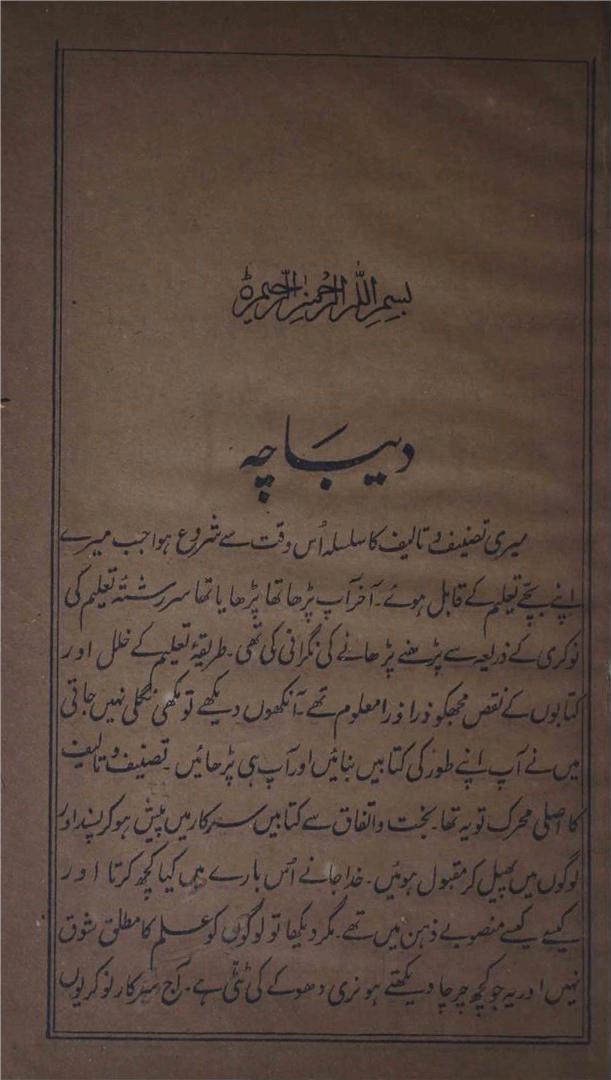 بسم اللہ الرحمن الرحیم
دیباچہ
میری تصنیف و تالیف کا سلسلہ اُس وقت سے شروع ہوا جب میرے
اپنے بچے تعلیم کے قابل ہوئے۔ آخر آپ پڑھا تھا پڑھایا تھا سررشتۂ تعلیم کی
نوکری کے ذریعہ سے پڑھنے پڑھانے کی نگرانی کی تھی۔ طریقۂ تعلیم کے خلل اور
کتابوں کے نقص مجھکو ذرا ذرا معلوم تھے۔ آنکھوں دیکھے تو مکھی نگلی نہیں جاتی
میں نے آپ اپنے طور کی کتابیں بنائیں اور آپ ہی پڑھائیں۔ تصنیف و تالیف
کا اصلی محرک تو یہ تھا۔ بخت و اتفاق سے کتابیں سرکار میں پیش ہو کر پسند اور
لوگوں میں پھیل کر مقبول ہوئیں۔ خدا جانے اُس بارے میں کیا کچھ کرتا اور
کیسے کیسے منصوبے ذہن میں تھے۔ مگر دیکھا تو لوگوں کو علم کا مطلق شوق
نہیں اور یہ جو کچھ چرچا دیکھتے ہو نری دھوکے کی ٹٹی ہے۔ آج سرکار نوکریوں